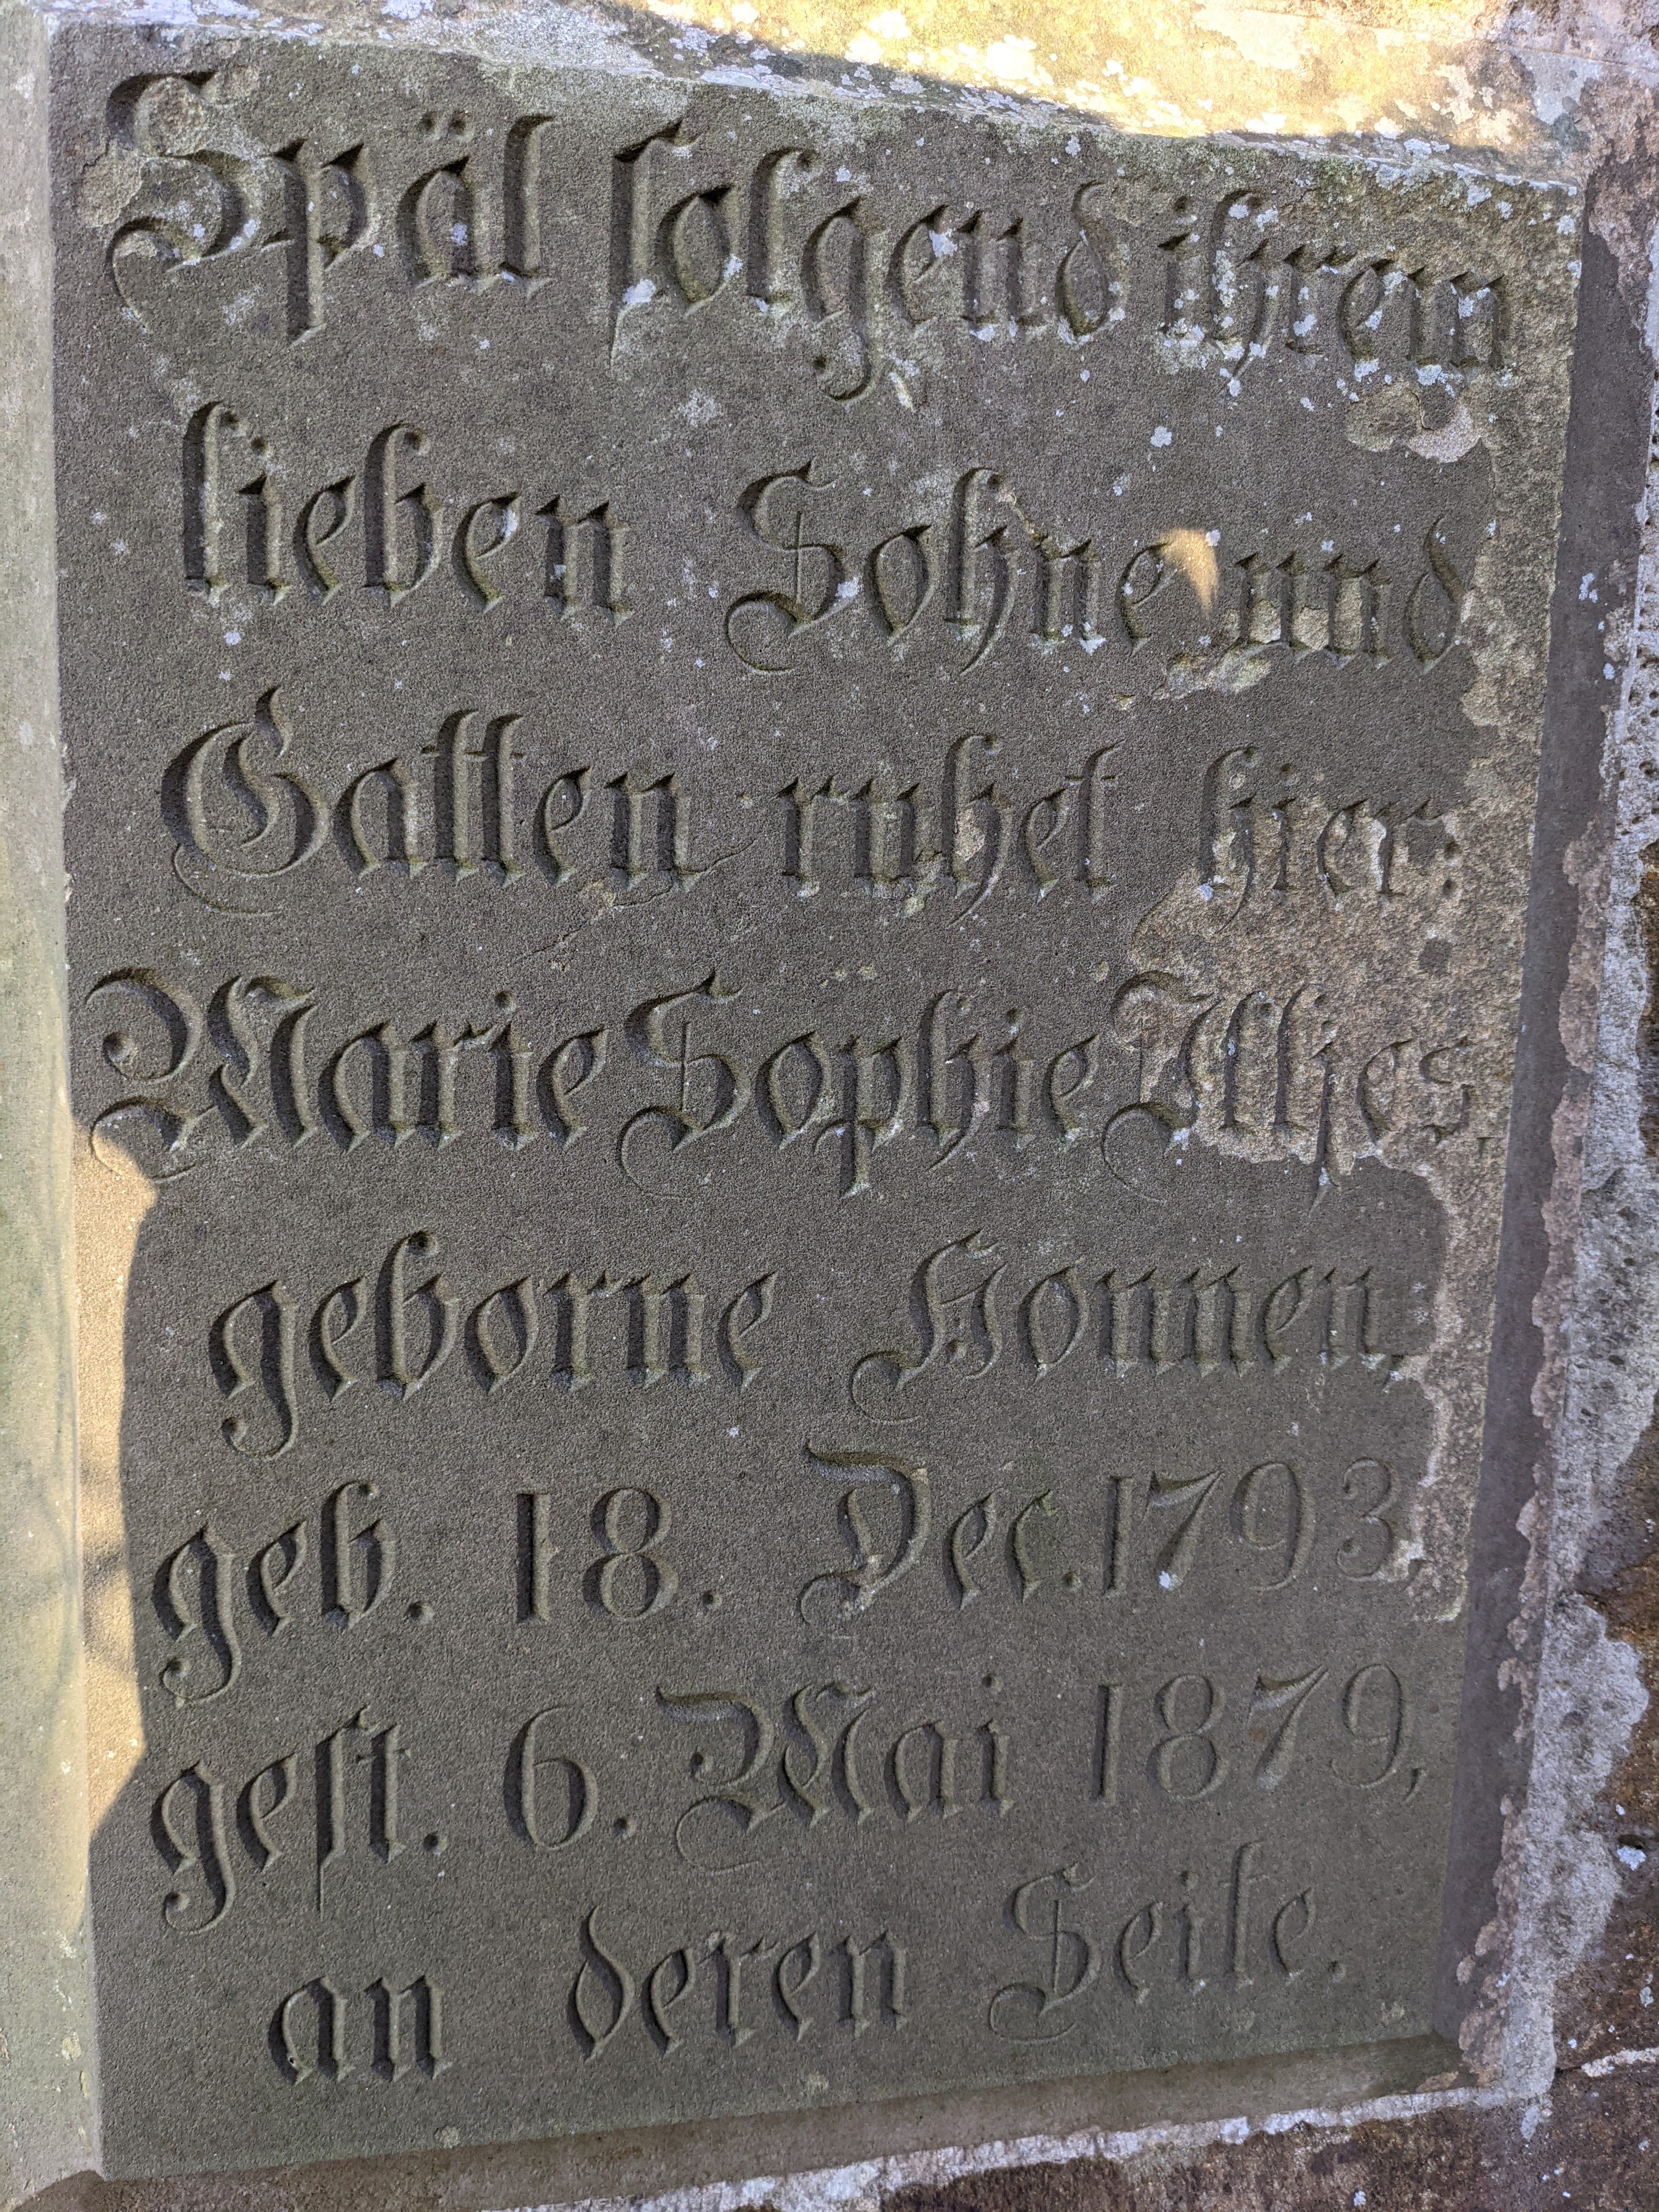 Spät folgend ihrem
lieben Sohne und
Gatten ruhet hier:
Marie Sophie
geborne Honnen,
geb. 18. Dec. 1793,
gest. 6. Mai 1879,
an deren Seite.